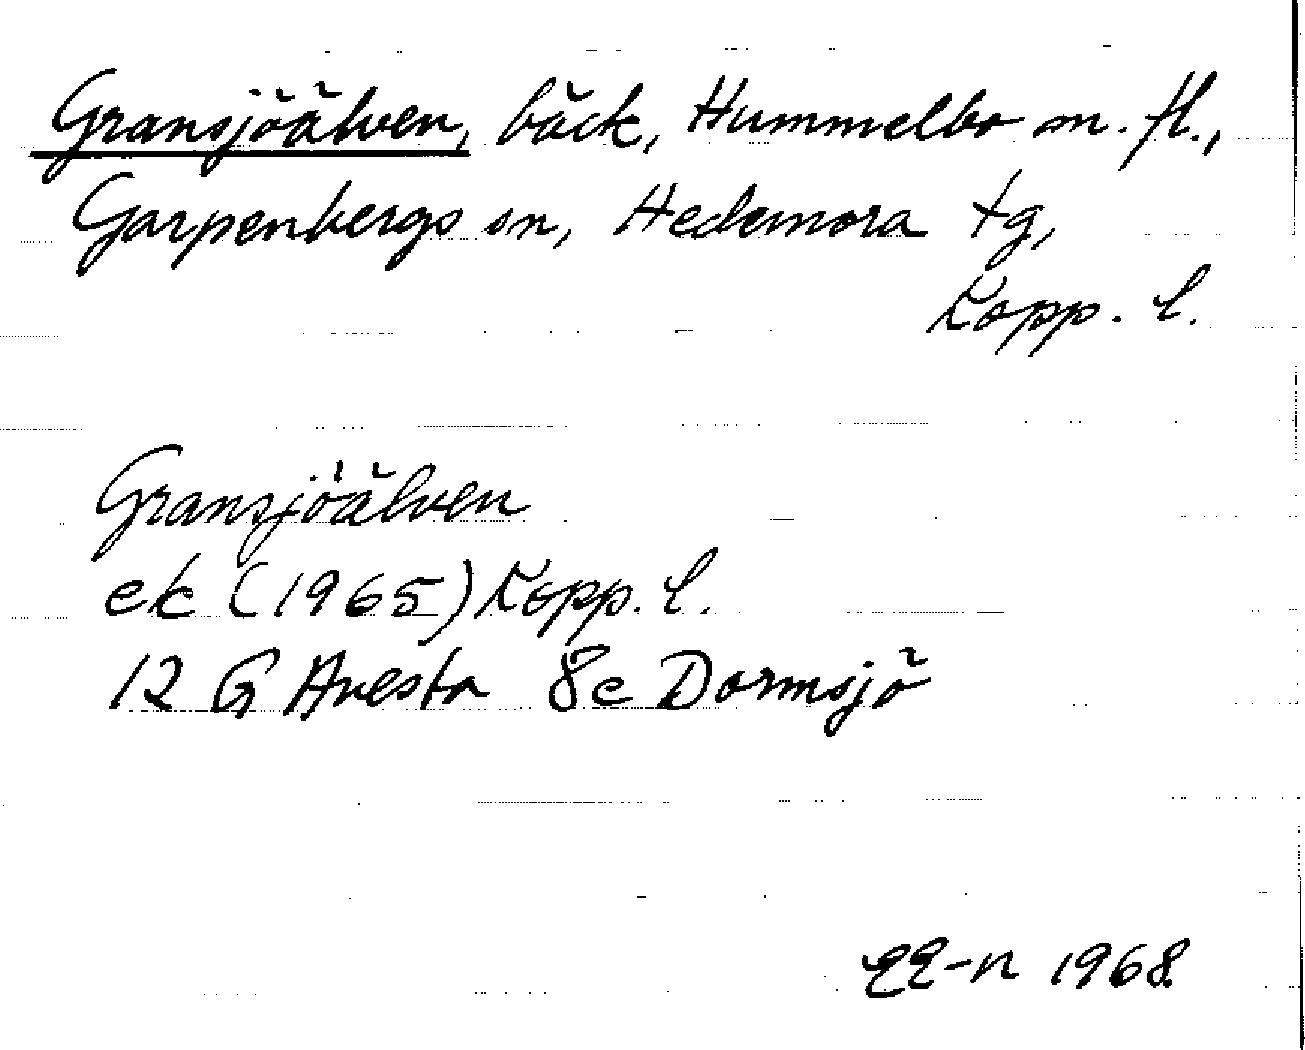 Gransjöälven, bäck, Hummelbo m. fl.,
Garpenbergs sn, Hedemora tg,
Kopp. l.
Gransjöälven
ek (1965) Kopp. l.
12 G Avesta 8c Dormsjö
1968